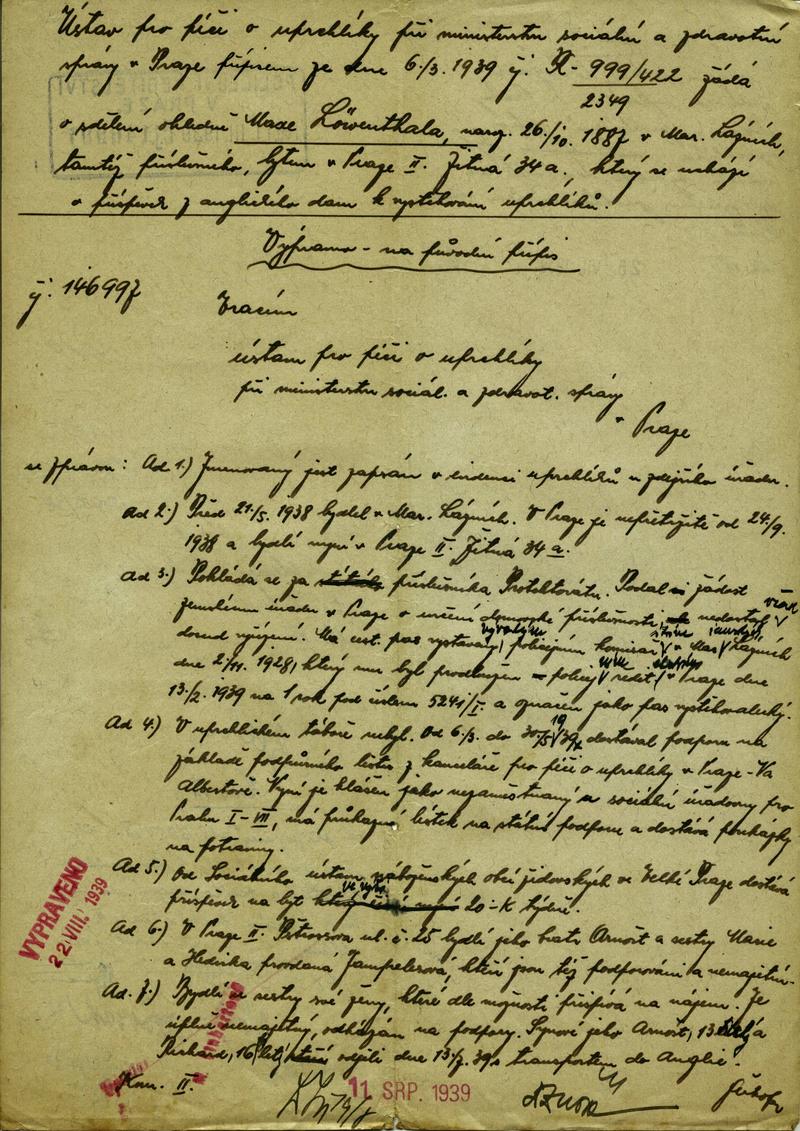 Ústav pro péči o uprchlíky při ministerstvu sociální a zdravotní
správy v Praze přípisem ze dne 6./3. 1939 čj. R- 999/422 žádá
2349
o sdělení ohledně Maxe Löwenthala, naroz. 26/10. 1887 v Mar. Lázních,
tamtéž příslušného, bytem v Praze II. Žitná 34 a., který se uchází
o příspěvek z anglického daru k vystěhování uprchlíků.
Výprava - na původní přípis
čj. 146997
Vracím
ústavu pro péči o uprchlíky
při ministerstvu sociál. a zdravot. správy
v Praze
se zprávou: Ad 1.) Jmenovaný jest zapsán v evidenci uprchlíků u zdejšího úřadu.
Ad 2.) Před 21./5. 1938 bydlel v Mar. Lázních. V Praze je nepřetržitě od 24./9.
1938 a bydlí nyní v Praze II. Žitná 34 a.
Ad 3.) Pokládá se za příslušníka Protektorátu. Podal si žádost
zemskému úřadu v Praze o určení domovské příslušnosti, nedostal
dosud vyřízení. Má cest. pas vystavený policejním komisař v Mar. Lázních
dne 2./11. 1928, který mu byl prodloužen policej. ředit. v Praze dne
13./2. 1939 na 1 rok pod číslem 5241/I. a označen jako pas vystěhovalecký.
Ad 4.) V uprchlickém táboře nebyl. Od 6./3. do 30/5 1939 dostával podporu na
základě podpůrného listu z kanceláře pro péči o uprchlíky v Praze - Na
Albertově. Nyní je hlášen jako nezaměstnaný u sociální úřadovny pro
Prahu I-VII, má průkazní lístek na státní podporu a dostává poukázky
na potraviny.
Ad 5.) Od Sociálního ústavu náboženských obcí židovských ve Velké Praze dostává
příspěvek na byt 20.-K týdně.
Ad 6.) V Praze II. Pštrossova ul. č. 25 bydlí jeho bratr Arnošt a sestry Marie
a Hedvika provdaná Jampelesová, kteří jsou též podporováni a nemajetní.
Ad. 7.) Bydlí u sestry své ženy, které dle možnosti přispívá na nájem. Je
úplně nemajetný, odkázán na podpory. Synové jeho Arnošt, 13 letý a
Richard, 16 letý odjeli dne 13/7. 39 s transportem do Anglie.
Kom. II.
VYPRAVENO
22. VIII. 1939
11 SRP. 1939